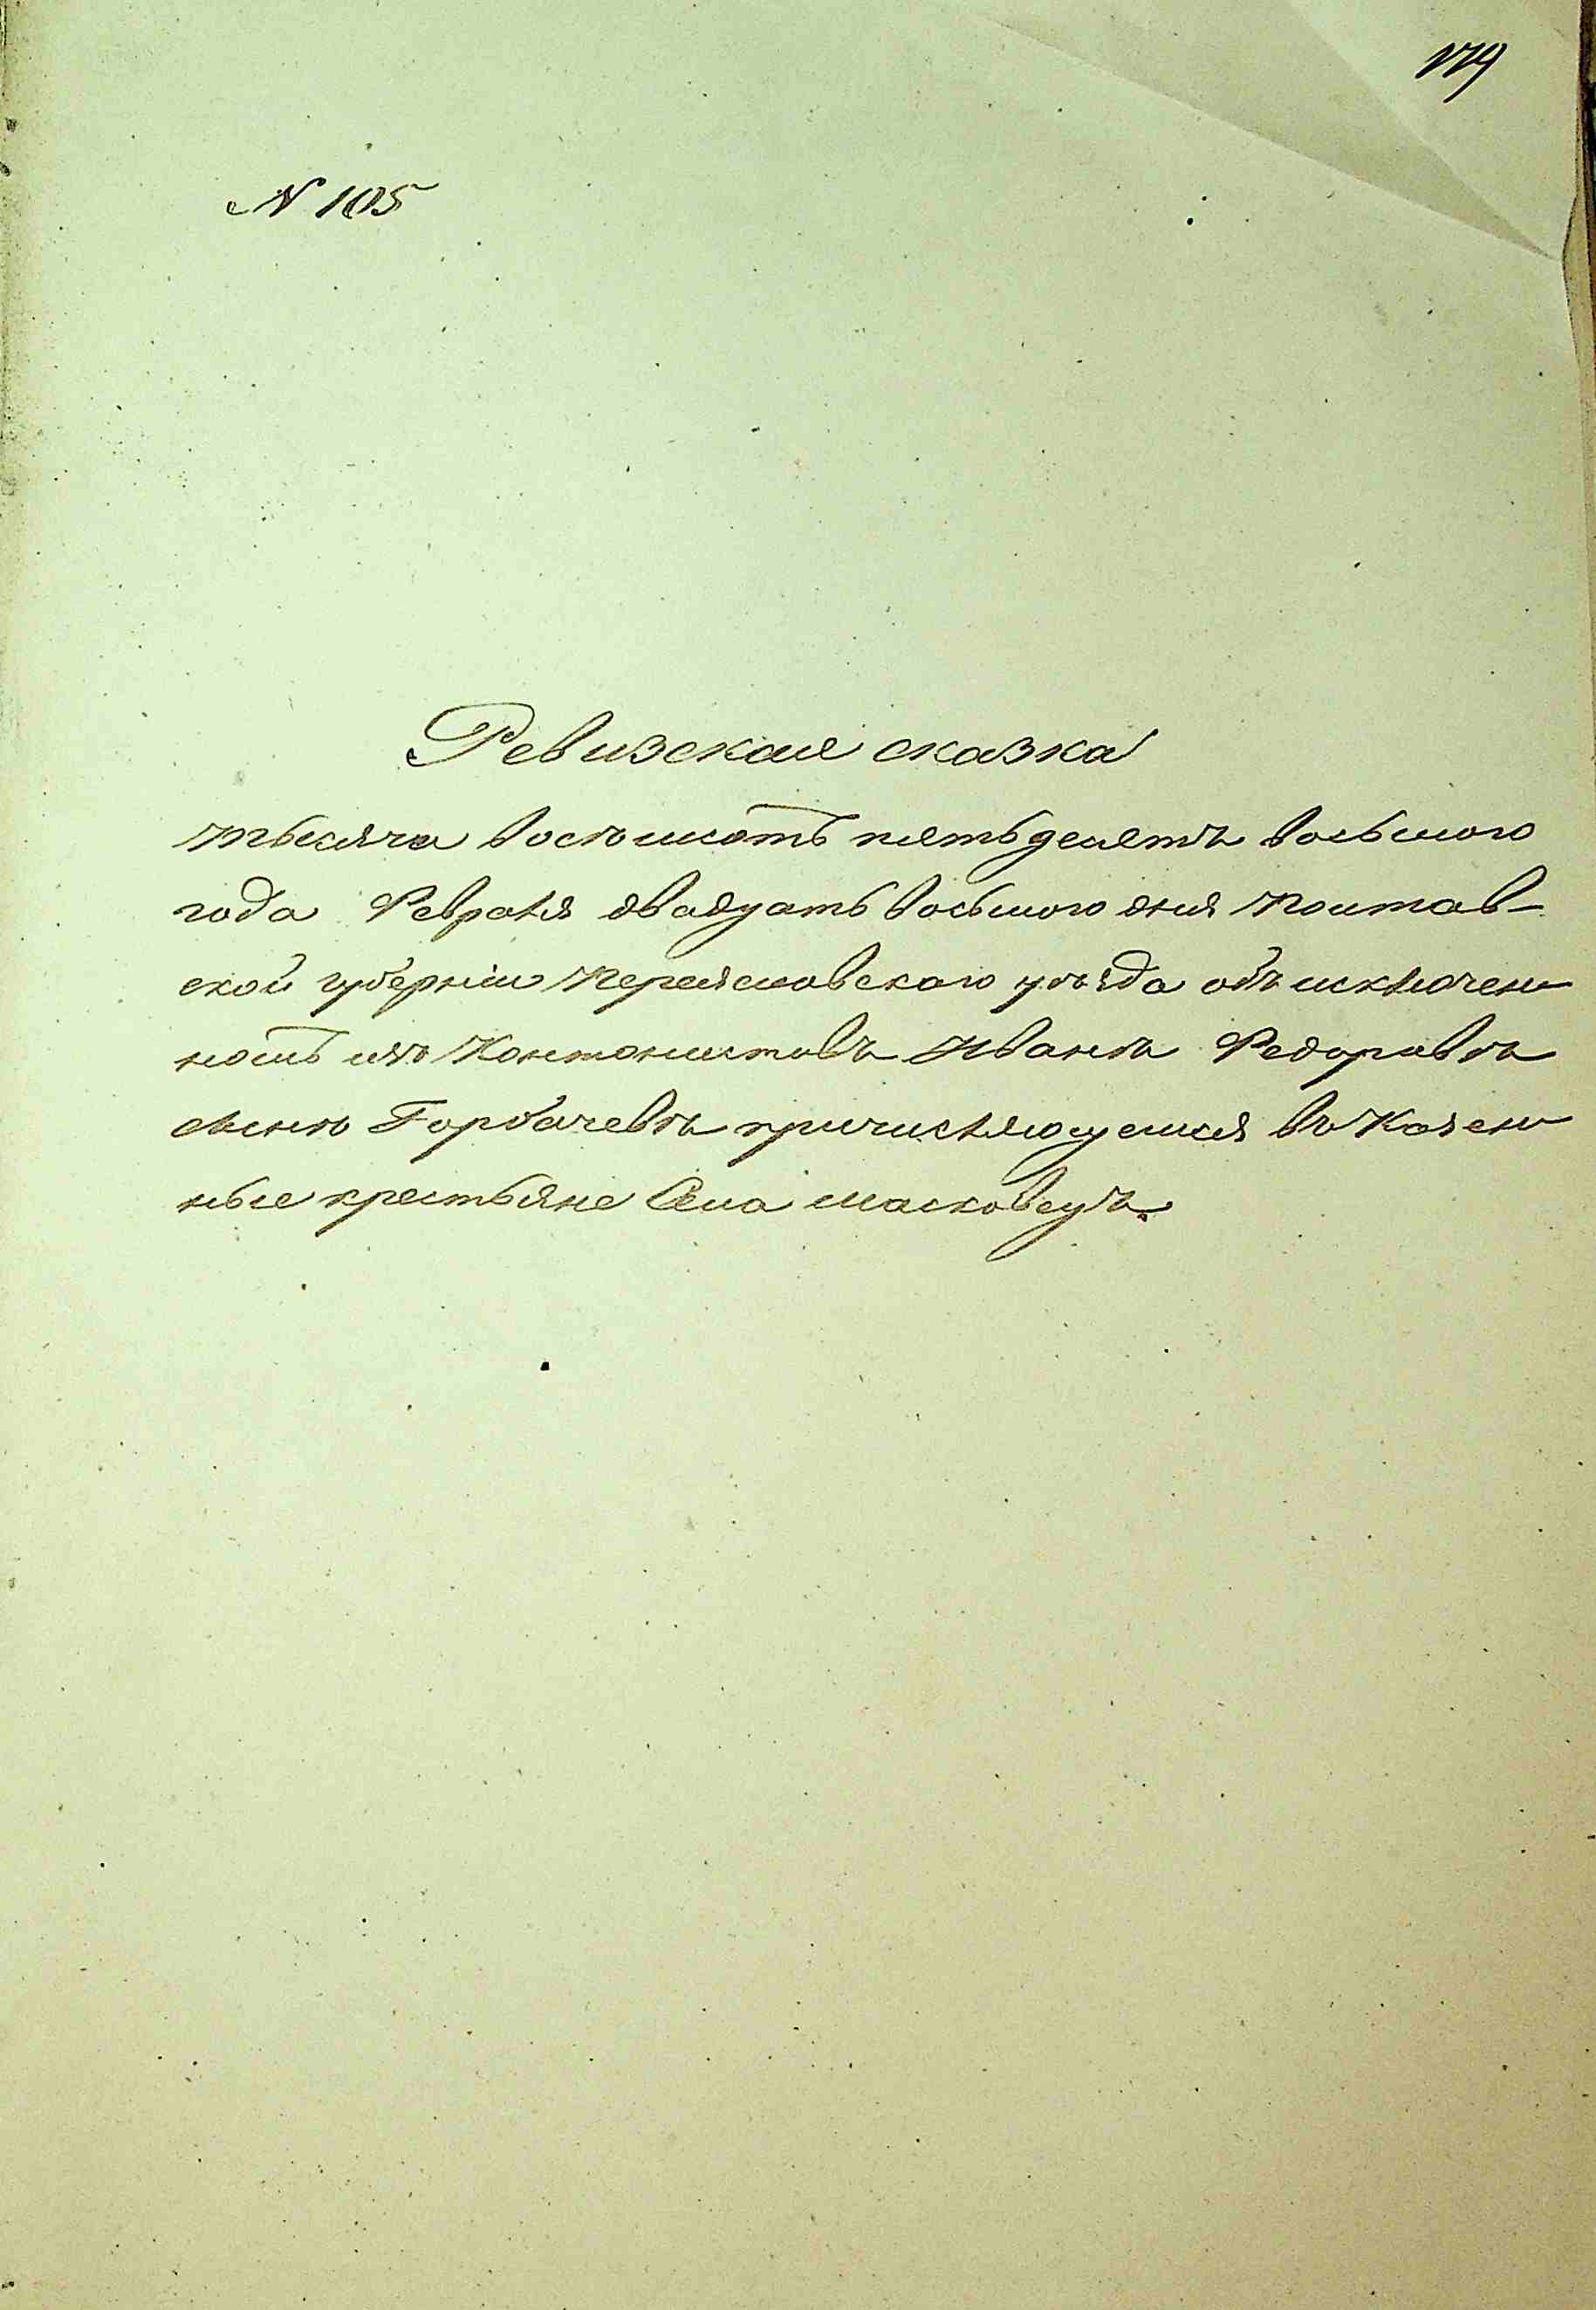 179
N 105
Ревизская сказка
тысяча восѣмсотъ пятьдесятъ восьмого
года Февраля двадцать восьмого дня Полтав-
ской губерніи Переяславскаго уѣзда объ исключен
номъ изъ Кантонистовъ Иванѣ Федоровѣ
сынѣ Горбачевѣ причисляющемся въ Казен
ные крестьяне Села Масковецъ.